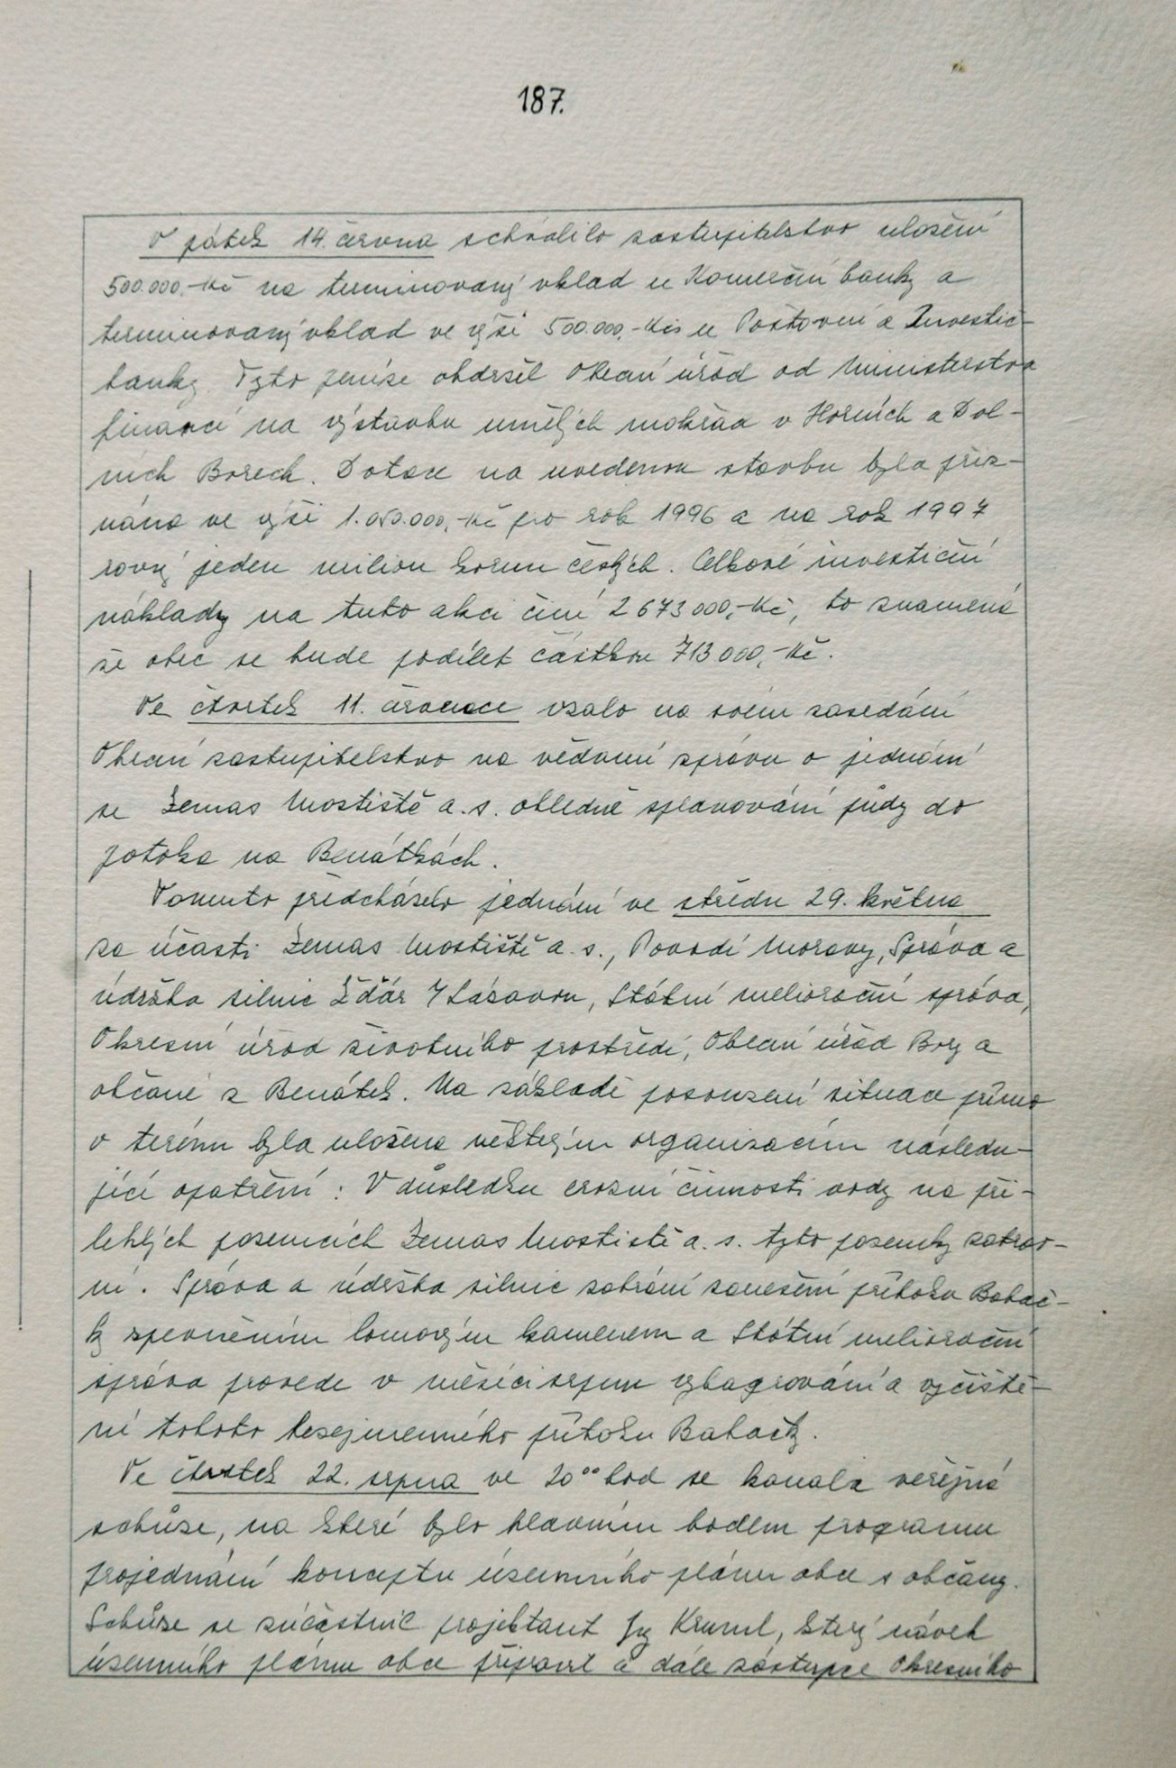 187.
V pátek 14. června schválilo zastupitelstvo uložení
500.000,-Kč na terminovaný vklad u Komerční banky a
terminovaný vklad ve výši 500.000,-Kčs u Poštovní a Investič-
banky. Tyto peníze obdržel Obecní úřad od Ministerstva
financí na výstavbu umělých mokřad v Horních a Dol-
ních Borech. Dotace na uvedenou stavbu byla přiz-
nána ve výši 1.050.000,-Kč pro rok 1996 a na rok 1997
rovný jeden milion korun českých. Celkové investiční
náklady na tuto akci činí 2 673 000,-Kč, to znamená
že obec se bude podílet částkou 713 000,-Kč.
Ve čtvrtek 11. července vzalo na svém zasedání
Obecní zastupitelstvo na vědomí zprávu o jednání
se Zemas Mostiště a.s. ohledně splavování půdy do
potoka na Benátkách.
Tomuto předcházelo jednání ve středu 29. května
za účasti Zemas Mostiště a. s., Povodí Moravy, Správa a
údržba silnic Žďár n/Sázavou, Státní meliorační správa,
Okresní úřad životního prostředí, Obecní úřad Bory a
občané z Benátek. Na základě posouzení situace přímo
v terénu byla uložena veškerým organizacím následu-
jící opatření: V důsledku erozní činnosti vody na při-
lehlých pozemcích Zemas Mostiště a. s. tyto pozemky zatrav-
ní. Správa a údržba silnic zabrání zanešení přítoku Babač-
ky zpevněním lomovým kamenem a Státní meliorační
správa provede v měsíci srpnu vybagrování a vyčiště-
ní tohoto bezejmenného přítoku Babačky.
Ve čtvrtek 22. srpna ve 20⁰⁰ hod se konala veřejná
schůze, na které bylo hlavním bodem programu
projednání konceptu územního plánu obce s občany.
Schůze se zúčastnil projektant Ing Kruml, který návrh
územního plánu obce připravil a dále zástupce Okresního